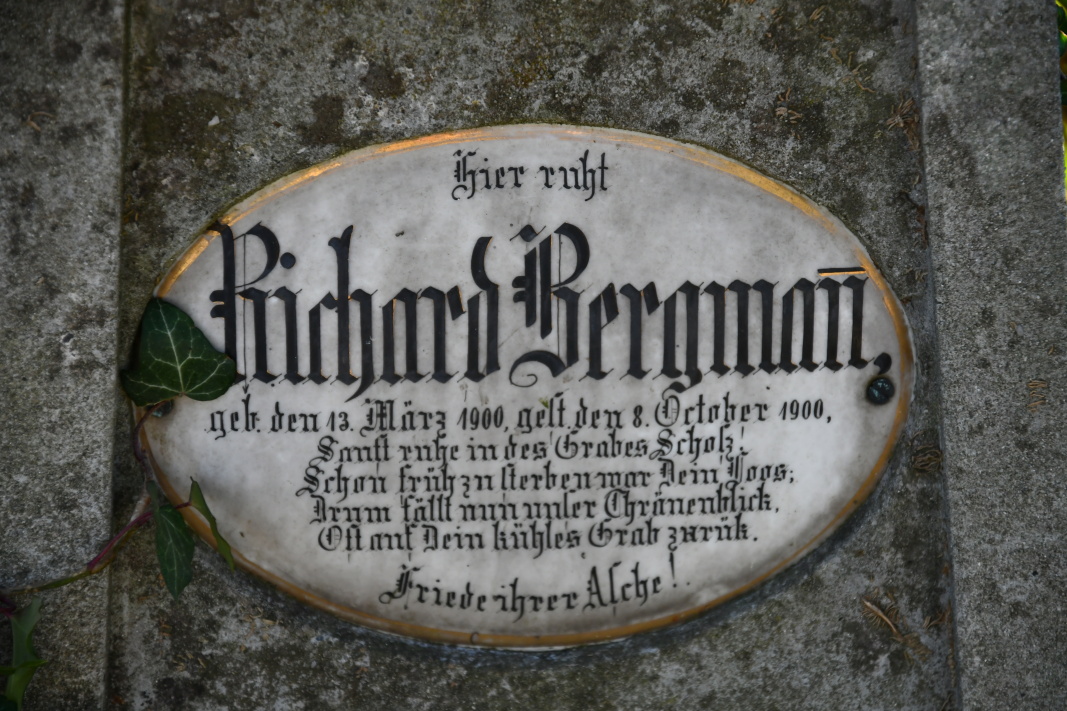 Hier ruht
Richard Bergman̅,
geb. den 13. März 1900, gest. den 8. October 1900,
Sanft ruhe in des Grabes Schoß!
Schon früh zu sterben war Dein Loos;
Drum fällt nun unser Thränenblick,
Oft auf Dein kühles Grab zurük.
Friede ihrer Asche!